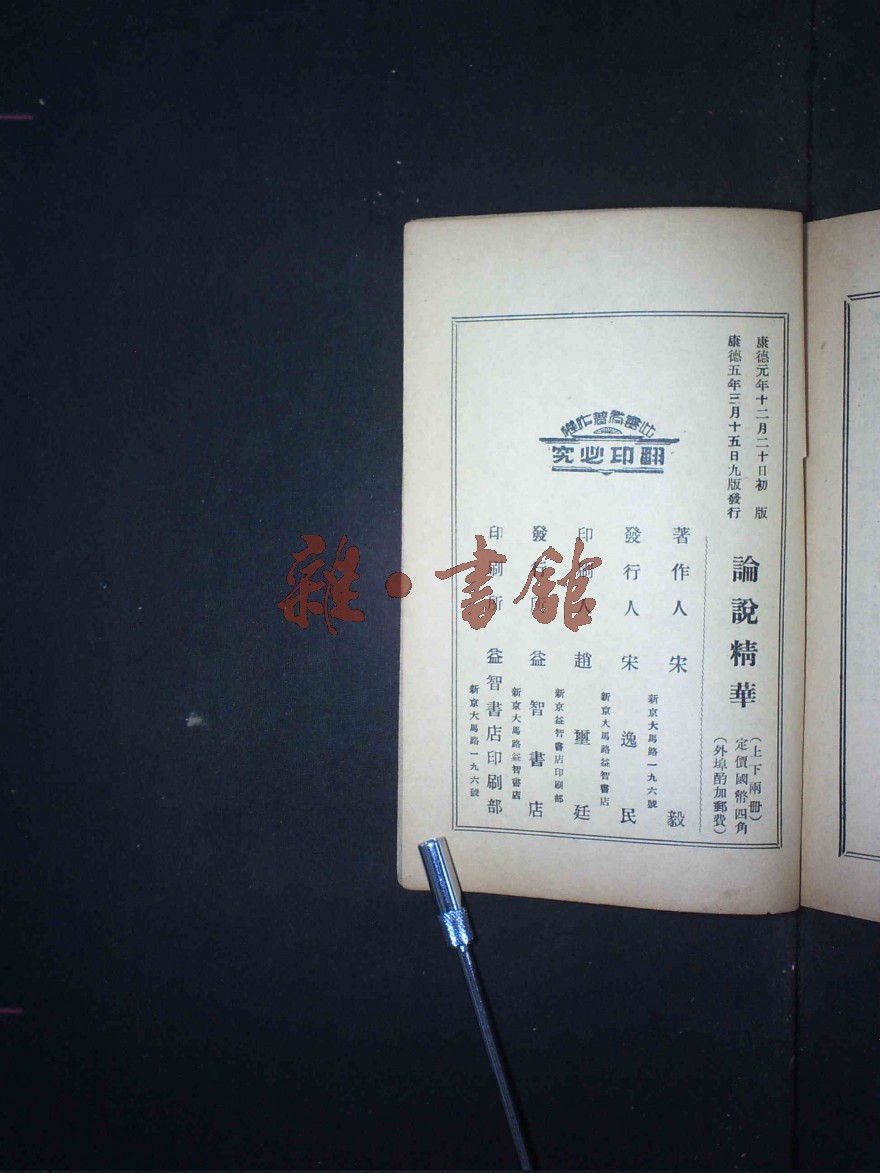 康德元年十二月二十日初版
康德五年三月十五日九版發行
論說精華
（上下兩冊）
定價國幣四角
（外埠酌加郵費）
著作人 宋毅
新京大馬路一九六號
發行人 宋逸民
新京大馬路益智書店
印刷人 趙璽廷
新京益智書店印刷部
發行所 益智書店
新京大馬路益智書店
印刷所 益智書店印刷部
新京大馬路一九六號
此書有著作權
翻印必究
雜·書館